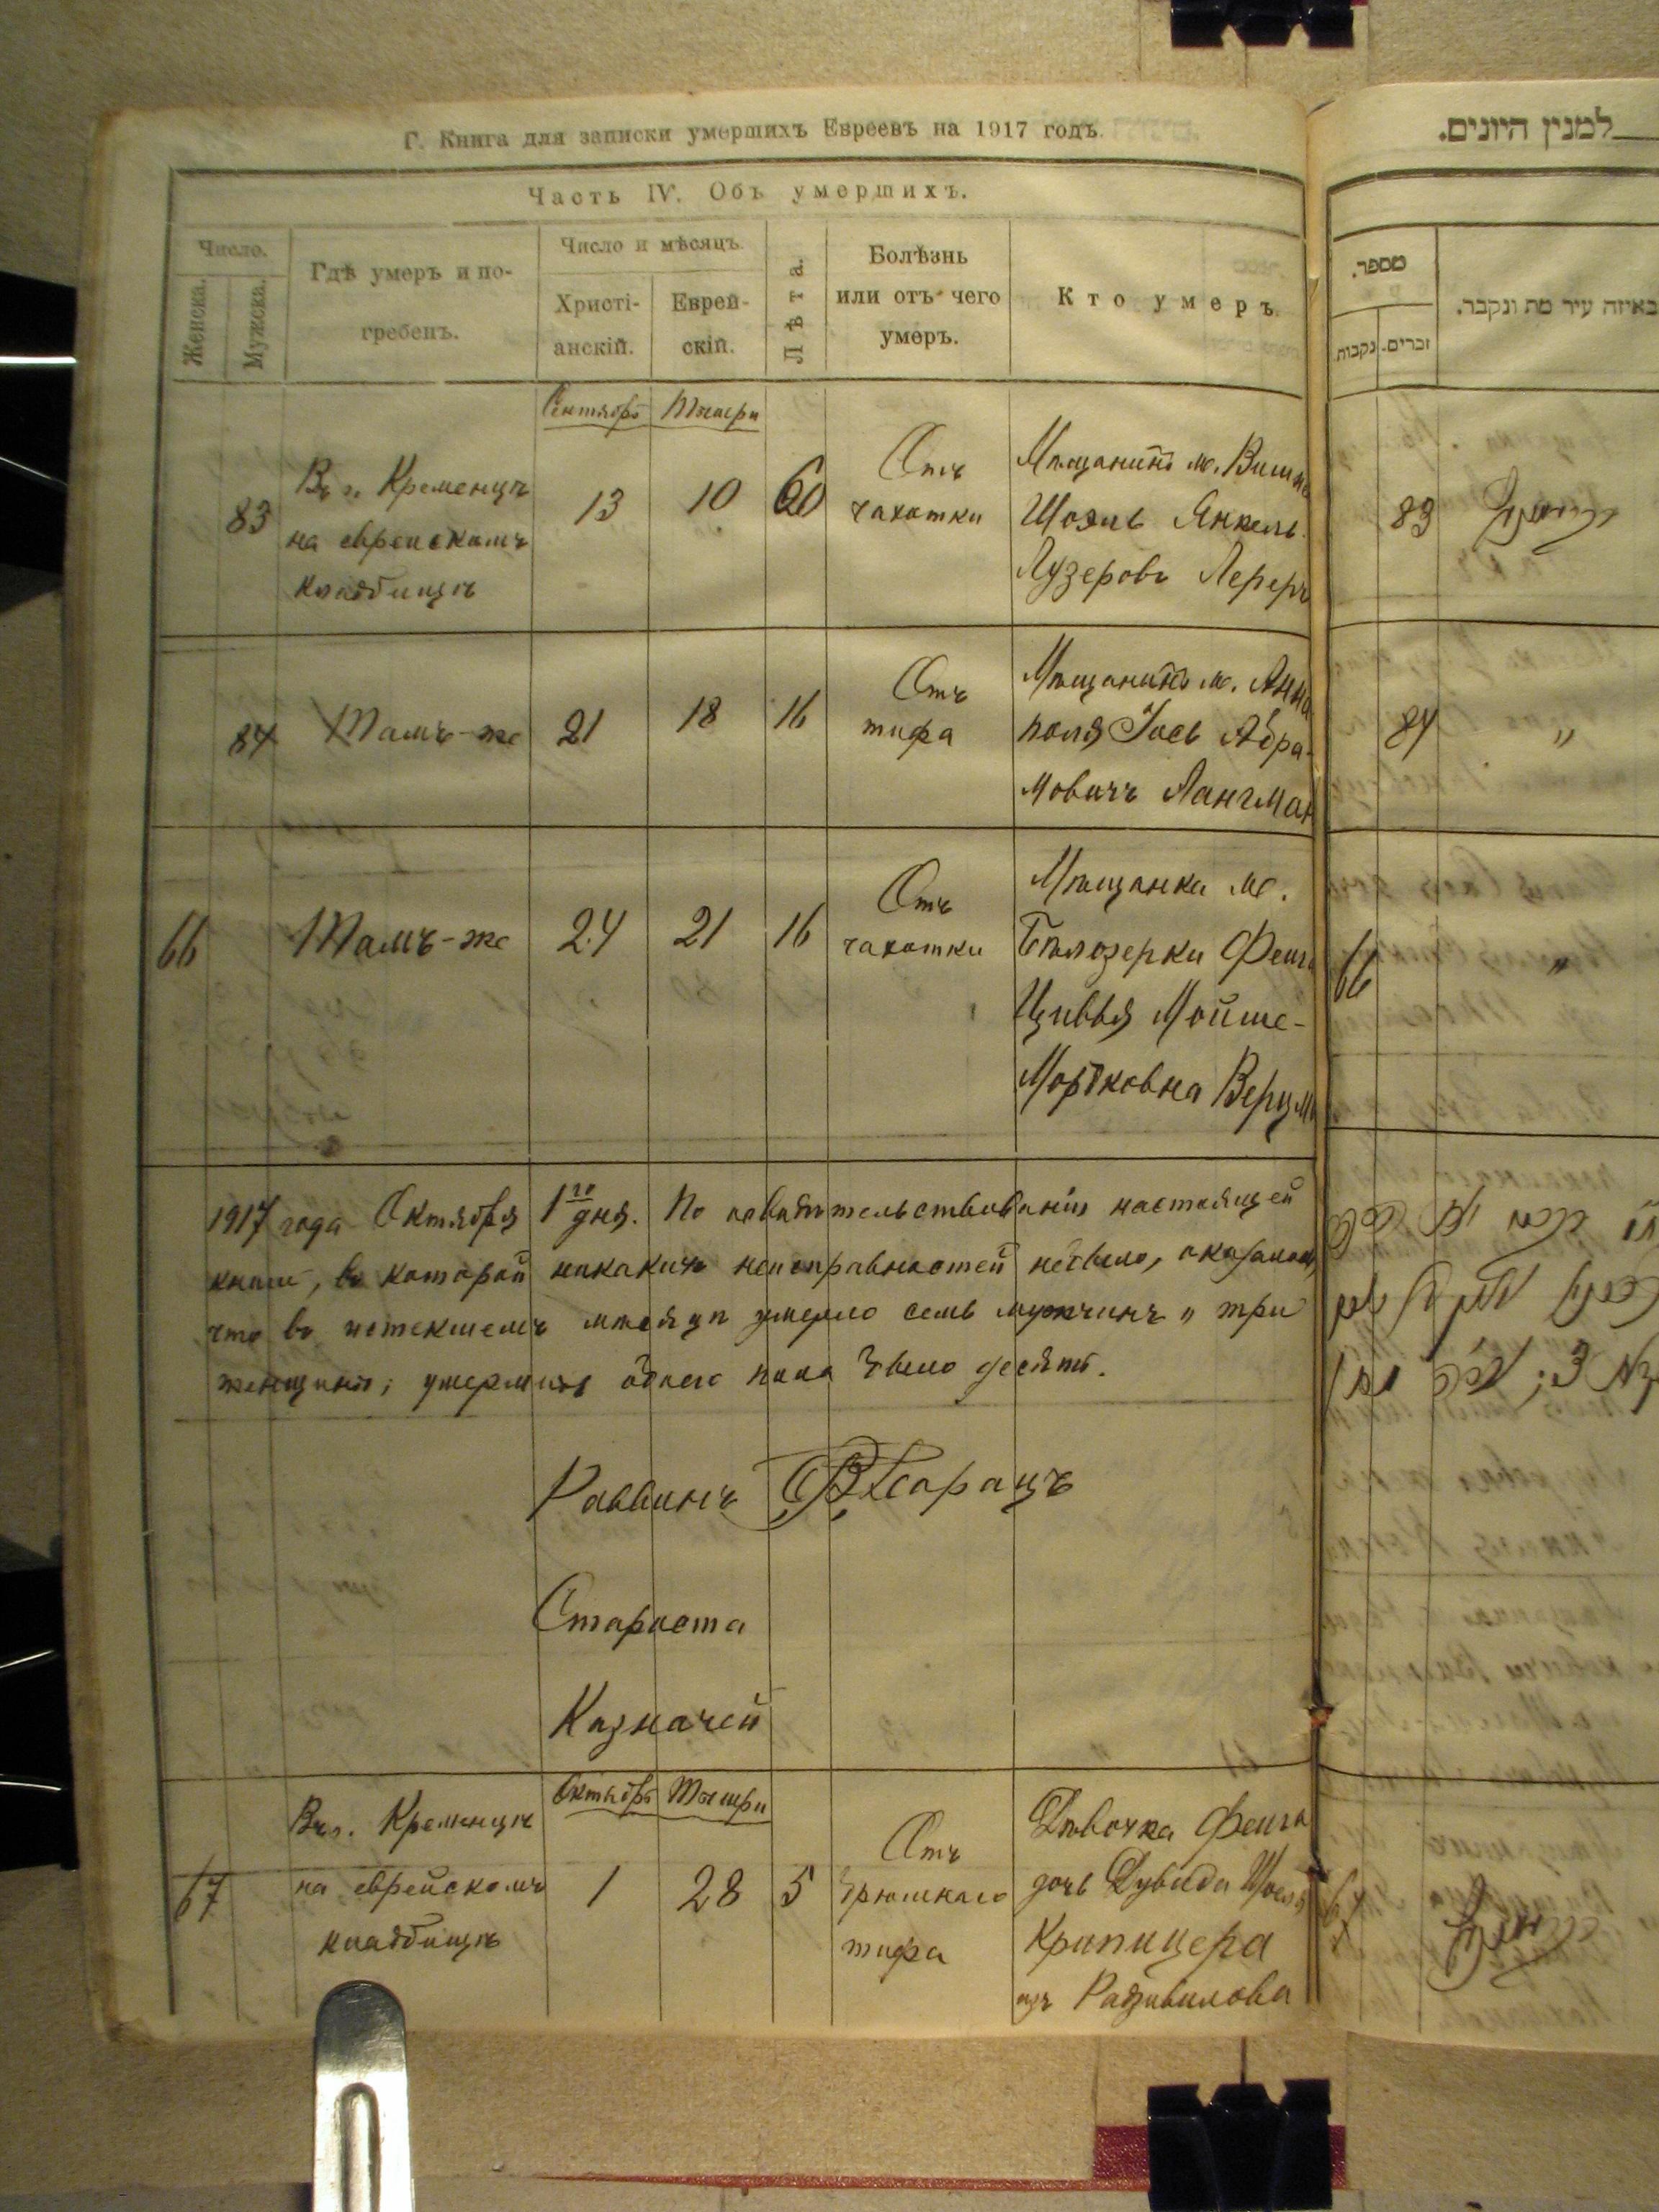 Г. Книга для записки умершихъ Евреевъ на 1917 годъ.
Часть IV. Объ умершихъ.
Число.
Женска.
Мужска.
Гдѣ умеръ и по-
гребенъ.
Число и мѣсяцъ.
Христі-
анскій.
Еврей-
скій.
Лѣта.
Болѣзнь
или отъ чего
умеръ.
Кто умеръ.
Сентябрь
Тишри
83
Въ г. Кременцѣ
на еврейскомъ
кладбищѣ
13
10
60
Отъ
чахотки
Мѣщанинъ м.
Шоэль Янкель
Лузеровъ Лереръ
84
Тамъ-же
21
18
16
Отъ
тифа
Мѣщанинъ м. Анно
поля Іось Абра-
мовичъ Лангман
66
Тамъ-же
24
21
16
Отъ
чахотки
Мѣщанка м.
Бѣлозерки Фейга
Цивья Мойше-
Мортковна
1917 года Октября 1го дня. По освидѣтельствованіи настоящей
книги, въ которой никакихъ неисправностей небыло, оказалось,
что въ истекшемъ мѣсяцѣ умерло семь мужчинъ и три
женщины; умершихъ обоего пола было десять.
Раввинъ
Староста
Казначей
Октябрь
Тишри
67
Въ г. Кременцѣ
на еврейскомъ
кладбищѣ
1
28
5
Отъ
брюшнаго
тифа
Дѣвочка Фейга
дочь Дувида
Крипицера
изъ Радзивилова
למנין היונים.
מספר.
נקבות
זכרים.
באיזה עיר מת ונקבר.
83
84
"
66
"
67